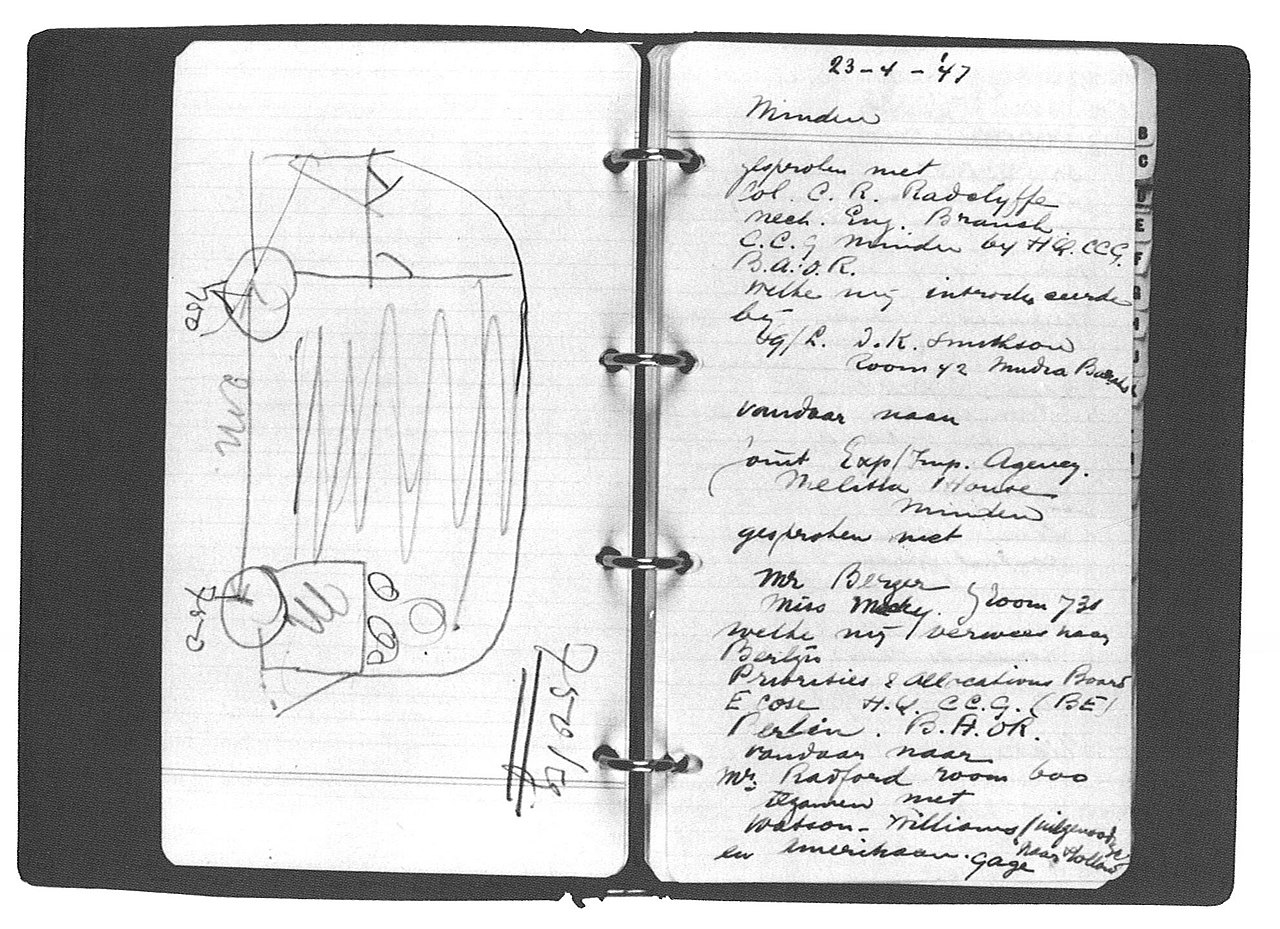 750
2 m
750
750 kg
23-4-'47
Minden
gesproken met
Col. C. R. Radclyffe
Mech. Eng. Branch.
C.C.G Minden by HQ. CCG.
B.A.O.R.
welke mij introduceerde
bij
Sq/L. D.K. Smithson
Room 42 Mudra Barracks
vandaar naar
Joint Exp/Imp. Agency.
Melitta House
Minden
gesproken met
Mr Berger
Miss Room 730
welke mij verwees naar
Berlijn
Priorities & Allocations Board
E Cose H.Q. C.C.G. (BE)
Berlin. B.A.OR.
vandaar naar
Mr. Radford room 600
tezamen met
Watson-Williams (uitgenoodigd
naar Holland)
en Amerikaan. Gage
B
C
D
E
F
G
H
I
J